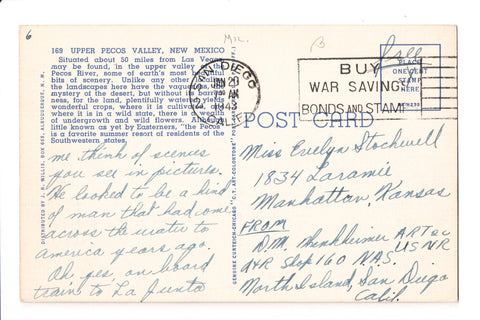 6
Mil.
B
169 UPPER PECOS VALLEY, NEW MEXICO
Situated about 50 miles from Las Vegas,
may be found, in the upper valley of the
Pecos River, some of earth's most beautiful
bits of scenery. Unlike any other
the landscapes here have the
mystery of the desert, but without its barren-
ness, for the land, plentifully watered, yields
wonderful crops, where it is cultivated, and
where it is in a wild state, there is a wealth
of undergrowth and wild flowers.
little known as yet by Easterners, "the Pecos"
is a favorite summer resort of residents of the
Southwestern states.
SAN DIEGO
JAN 20
AM
1943
CALIF.
BUY
WAR SAVINGS
BONDS AND STAMPS
Free
PLACE
ONE CENT
STAMP
HERE
POST CARD
me think of scenes
you see in pictures.
He looked to be a kind
of man that had come
across the water to
america years ago.
Oh yes, on board
train to La Junta
Miss Evelyn Stockwell
1834 Laramie
Manhattan, Kansas
FROM
D.M. ART 2c
USNR
A&R Shop 160 NAS.
North Island, San Diego
Calif.
DISTRIBUTED BY J. R. WILLIS, BOX 655, ALBUQUERQUE, N. M.
GENUINE CURTEICH-CHICAGO "C.T. ART-COLORTONE" POST CARD